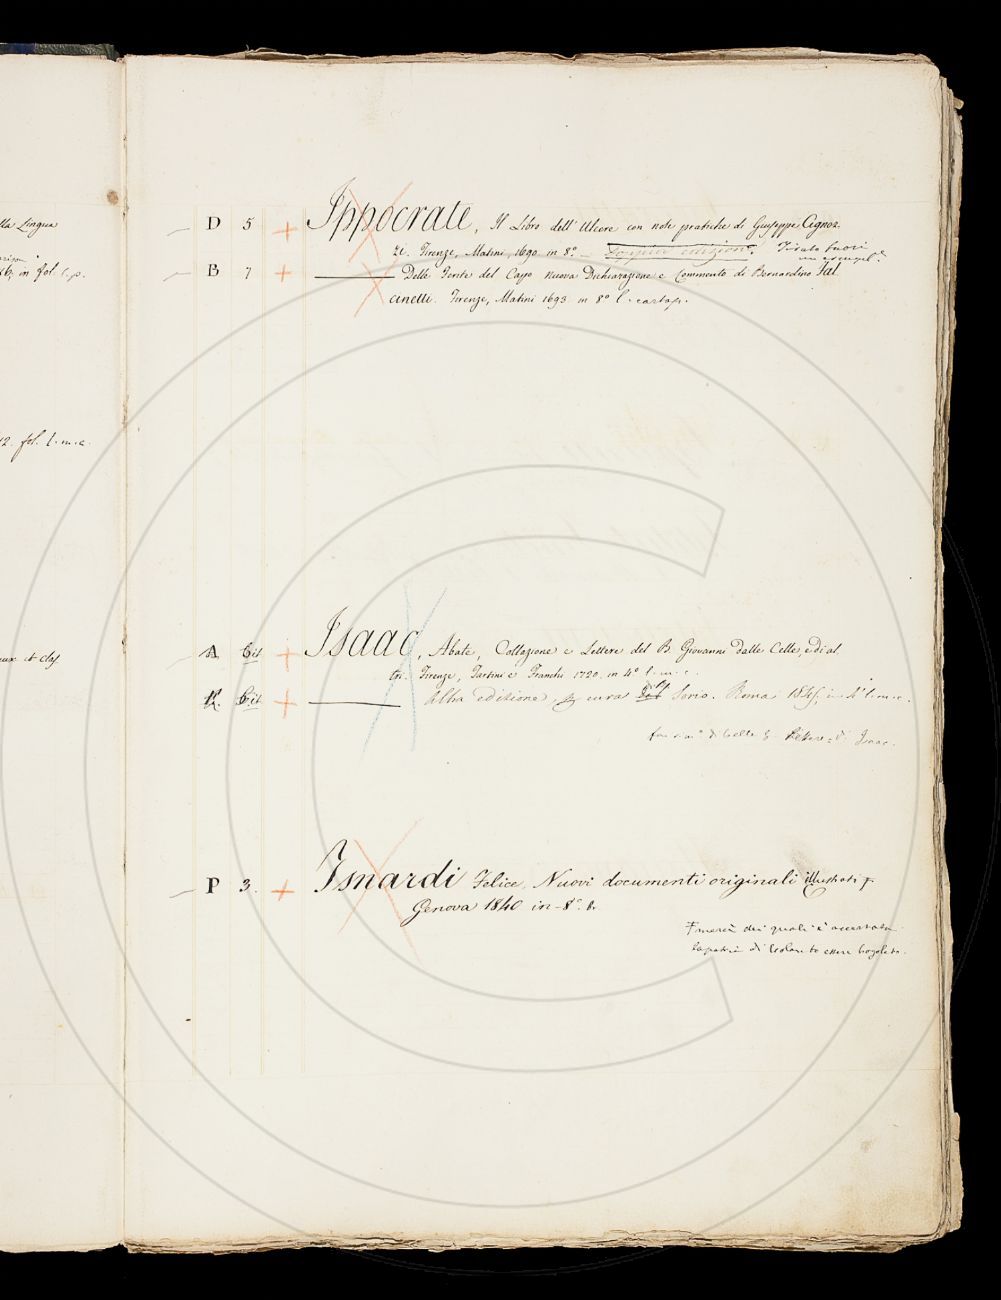 lla Lingua
in fol. l.p.
fol. l.m.c.
D 5 + Ippocrate, Il Libro dell'Ulcere con note pratiche di Giuseppe Cignoz
zi. Firenze, Matini, 1690 in 8°. — Doppia edizione. Tirato fuori
un esempl.e
B 7 + ——— Delle Ferite del Capo nuova Dichiarazione e Commento di Bernardino Fal
cinelli. Firenze, Matini 1693 in 8° l. cartap.
et clas
A Cit + Isaac, Abate, Collazione e Lettere del B. Giovanni dalle Celle, e di al
tri. Firenze, Tartini e Franchi 1720. in 4° l.m.c.
R. Cit + ——— Altra edizione, a cura del Sorio. Roma 1845, in 4° l.m.c.
di Celle Lettere di Isaac.
P 3. + Isnardi Felice. Nuovi documenti originali illustrati
Genova 1840 in-8°. br.
mercè dei quali è accertata
la patria di Colombo essere Cogoleto.